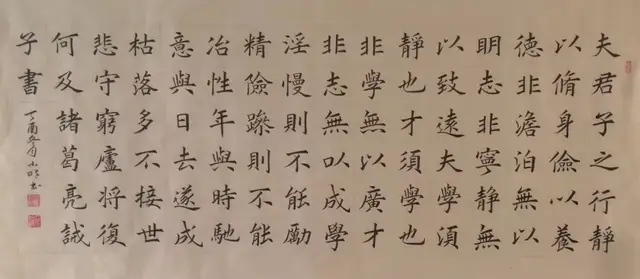 夫君子之行靜
以脩身儉以養
德非澹泊無以
明志非寧静無
以致遠夫學須
靜也才須學也
非學無以廣才
非志無以成學
淫慢則不能勵
精險躁則不能
冶性年與時馳
意與日去遂成
枯落多不接世
悲守窮廬將復
何及諸葛亮誡
子書
丁酉冬月